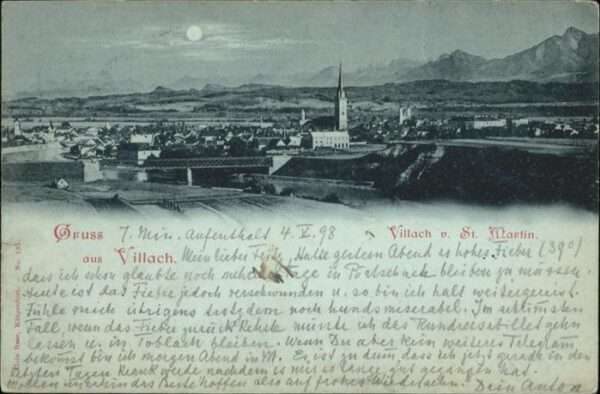 Gruss
aus Villach.
Villach v. St. Martin.
7 Min. Aufenthalt 4. V. 98
Mein lieber Fritz, Hatte gestern Abend so hohes Fieber (39°)
dass ich schon glaubte noch mehrere Tage in Pörtschach bleiben zu müssen.
Heute ist das Fieber jedoch verschwunden u. so bin ich halt weitergereist.
Fühle mich übrigens trotzdem noch hundsmiserabel. Im schlimmsten
Fall, wenn das Fieber zurück kehrte müsste ich das Rundreisebillet
lassen u. in Toblach bleiben. Wenn Du aber kein weiteres Telegram
bekomst bin ich morgen Abend in M. Es ist zu dum, dass ich jetzt gerade in den
letzten Tagen krank werde nachdem es mir so lange gut gegangen hat.
Wollen immerhin das Beste hoffen also auf frohes Wiedersehen. Dein Anton